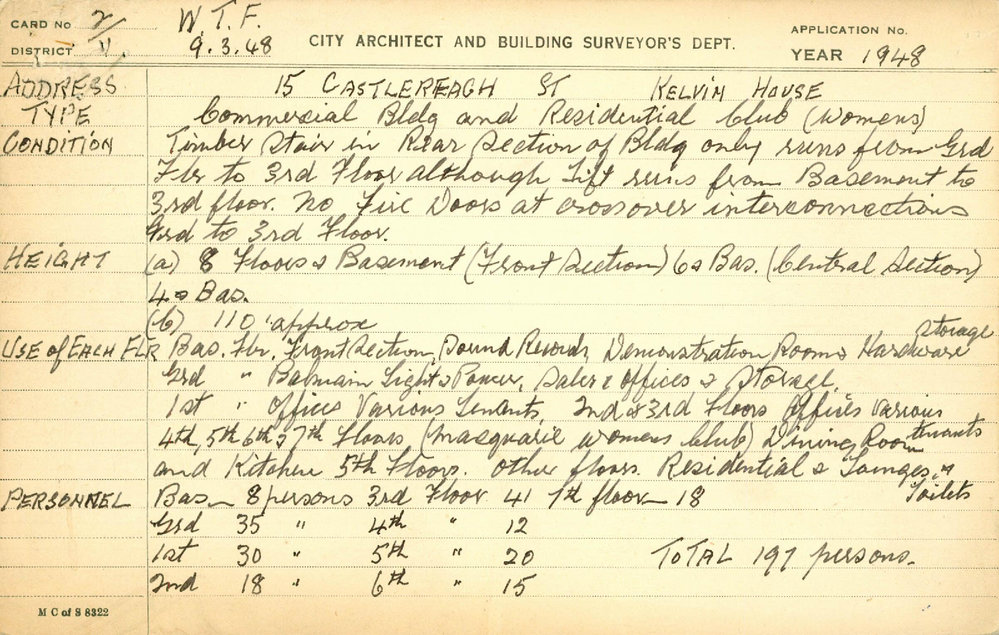 CARD No 2/V. W.T.F. APPLICATION No.
DISTRICT 9.3.48 CITY ARCHITECT AND BUILDING SURVEYOR'S DEPT. YEAR 1948
ADDRESS 15 CASTLEREAGH ST KELVIN HOUSE
TYPE Commercial Bldg and Residential Club (Womens)
CONDITION Timber Stair in Rear Section of Bldg only runs from Grd
Flr to 3rd Floor although Lift runs from Basement to
3rd floor. No Fire Doors at crossover interconnections
Grd to 3rd Floor.
HEIGHT (a) 8 Floors & Basement (Front Section) 6 & Bas. (Central Section)
4 & Bas.
(b) 110' approx
USE of EACH FLR Bas. Flr. Front Section, Sound Records, Demonstration Rooms Hardware Storage
Grd " Balmain Light & Power, Sales & Offices & Storage.
1st " Offices Various Tenants, 2nd & 3rd Floors Offices Various tenants
4th, 5th 6th & 7th Floors (Macquarie Womens Club) Dining Room
and Kitchen 5th Floors. Other floors. Residential & Lounges, & Toilets
PERSONNEL Bas - 8 persons 3rd Floor 41 7th floor - 18
Grd 35 " 4th " 12
1st 30 " 5th " 20 TOTAL 197 persons.
2nd 18 " 6th " 15
M C of S 8322